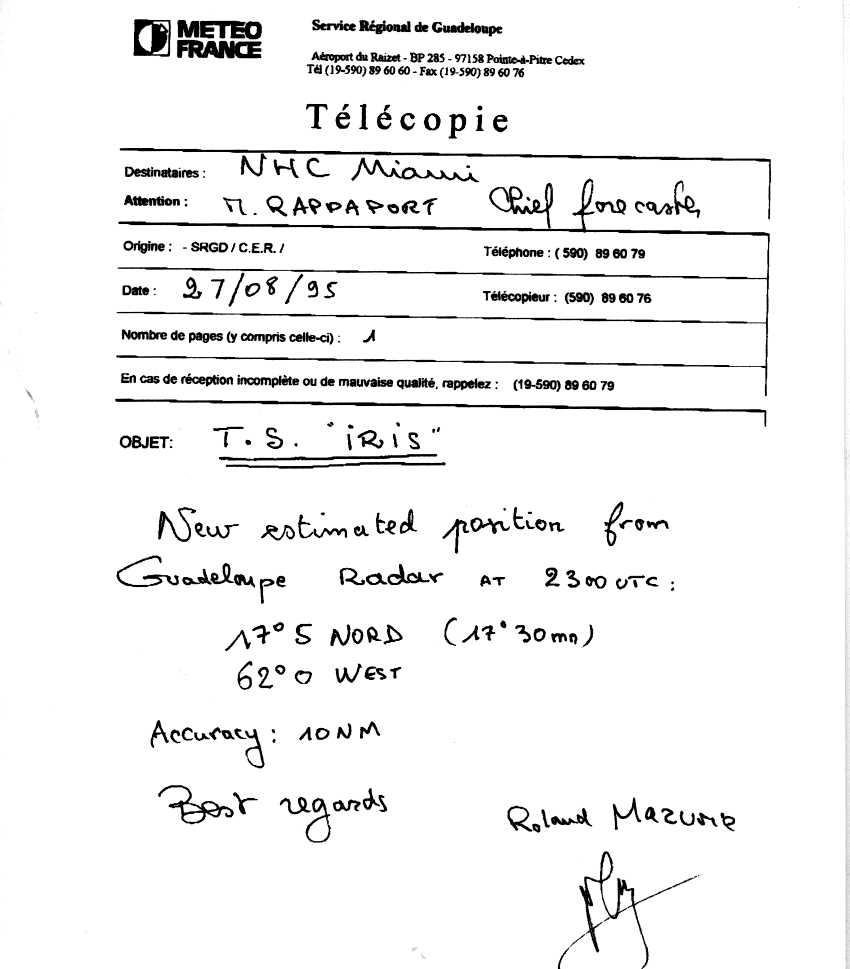 METEO
FRANCE
Service Régional de Guadeloupe
Aéroport du Raizet - BP 285 - 97158 Pointe-à-Pitre Cedex
Tél (19-590) 89 60 60 - Fax (19-590) 89 60 76
Télécopie
Destinataires : NHC Miami
Attention : M. RAPPAPORT Chief forecaster
Origine : - SRGD / C.E.R. / Téléphone : ( 590) 89 60 79
Date : 27/08/95 Télécopieur : (590) 89 60 76
Nombre de pages (y compris celle-ci) : 1
En cas de réception incomplète ou de mauvaise qualité, rappelez : (19-590) 89 60 79
OBJET: T.S. "IRIS"
New estimated position from
Guadeloupe Radar AT 2300 UTC :
17°5 NORD (17°30mn)
62°0 WEST
Accuracy : 10NM
Best regards
Roland MAZURIE